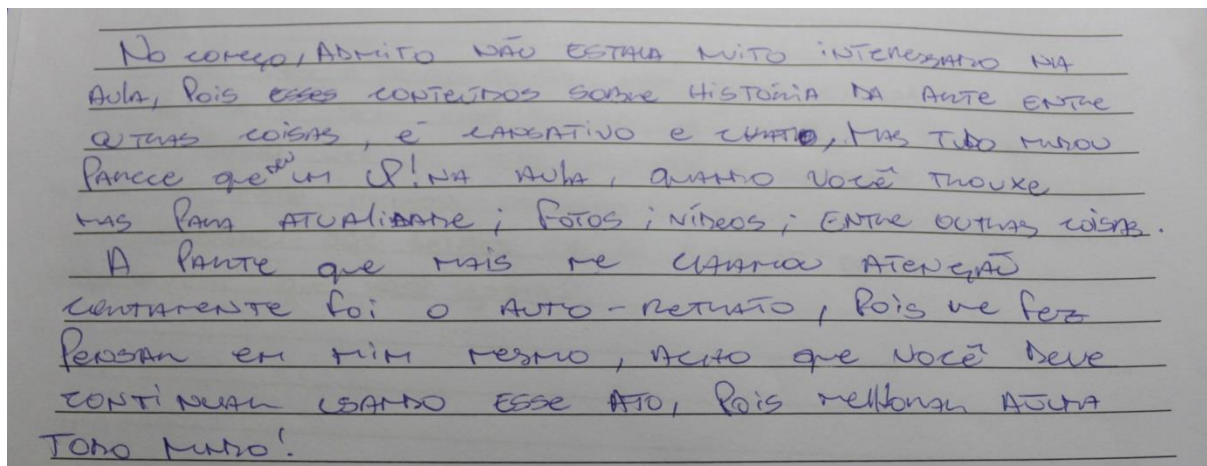 No começo, Admito não estava muito interessado na
Aula, Pois esses conteúdos sobre História da Arte entre
outras coisas, é cansativo e chato, mas tudo mudou
Parece que deu um UP! na aula, quando você trouxe
mas para atualidade; Fotos; vídeos; Entre outras coisas.
A Parte que mais me chamou atenção
certamente foi o Auto-retrato, Pois me fez
Pensar em mim mesmo, Acho que você deve
continuar usando esse ato, Pois melhorar
Todo mundo!